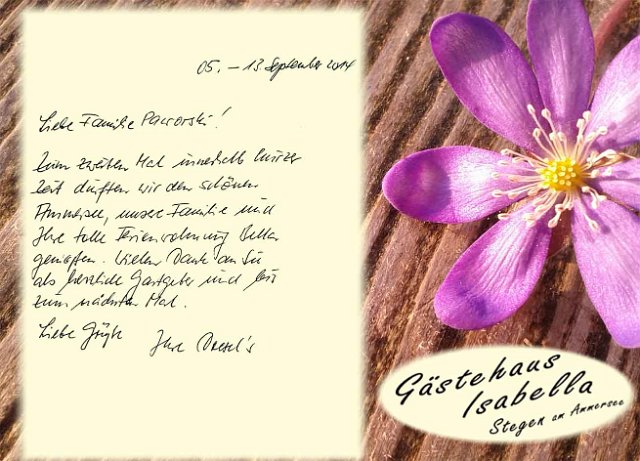 05. – 13. September 2014
Liebe Familie Paworski!
Zum zweiten Mal innerhalb kurzer
Zeit durften wir den schönen
Ammersee, unsere Familie und
Ihre tolle Ferienwohnung
genießen. Vielen Dank an Sie
als herzliche Gastgeber und bis
zum nächsten Mal.
Liebe Grüße
Ihre
Gästehaus
Isabella
Stegen am Ammersee